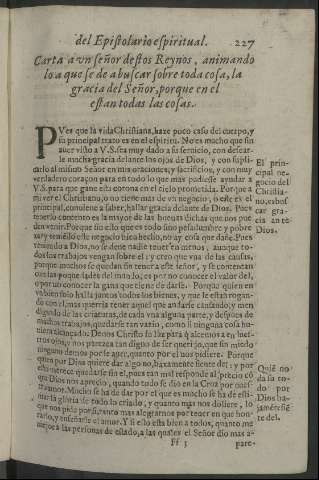 del Epistolario espiritual. 227
Carta a vn señor destos Reynos, animando
lo a que se de a buscar sobre toda cosa, la
gracia del Señor, porque en el
estan todas las cosas.
PVes que la vida Christiana, haze poco caso del cuerpo, y
su principal trato es en el espiritu. No es mucho que sin
auer visto a V.S. sea muy dado a su seruicio, con dessear-
le mucha gracia delante los ojos de Dios, y con supli-
carlo al mismo Señor en mis oraciones, y sacrificios, y con muy
verdadero coraçon para en todo lo que mas pudiesse ayudar a
V.S. para que gane esta corona en el cielo prometida. Porque a
mi ver el Christiano, o no tiene mas de vn negocio, o este es el
principal, conuiene a saber, hallar gracia delante de Dios. Pues
tenerlo contento es la mayor de las buenas dichas que nos pue
den venir. Porque sin ello que es todo sino pesadumbre y pobre
za? y teniendo este negocio bien hecho, no ay cosa que dañe. Pues
teniendo a Dios, no se deue nadie tener en menos, aunque to-
dos los trabajos vengan sobre el: y creo que vna de las causas,
porque muchos se quedan sin tener a este señor, y se contentan
con las poquedades del mundo, es por no conocer el valor del,
o por no conocer la gana que tiene de darse. Porque quien en
vn bien solo halla juntos todos los bienes, y que le estan rogan-
do con el, mas querria tener aquel que andarse cansando, y men
digando de las criaturas, de cada vna alguna parte, y despues de
muchos trabajos, quedarse tan vazio, como si ninguna cosa hu-
uiera alcançado.
ninguno demos por le auer, quanto por el nos pidiere. Porque
quien dessea mal quiere dar algo no,
que Dios nos aprecio, quando todo se dio en la Cruz por nues-
tro amor. Mucho se ha de dar por el que es mucho se ha de esti-
mar la gloria de todo lo criado, y quanto mas nos doliere, lo
que nos pide por si, tanto mas alegrarnos por tener en que hon-
rarlo, y enseñarle el amor. Y si ello esta bien a todos, quanto me
mejor a las personas de estado, a las quales el Señor dio mas a-
El prin-
cipal ne-
gocio del
Christia-
no, es bus
car gra-
cia ante
Dios.
Quië no
da su to-
do por
Dios ba-
jamëte siē
te del.
Ff 3 pare-